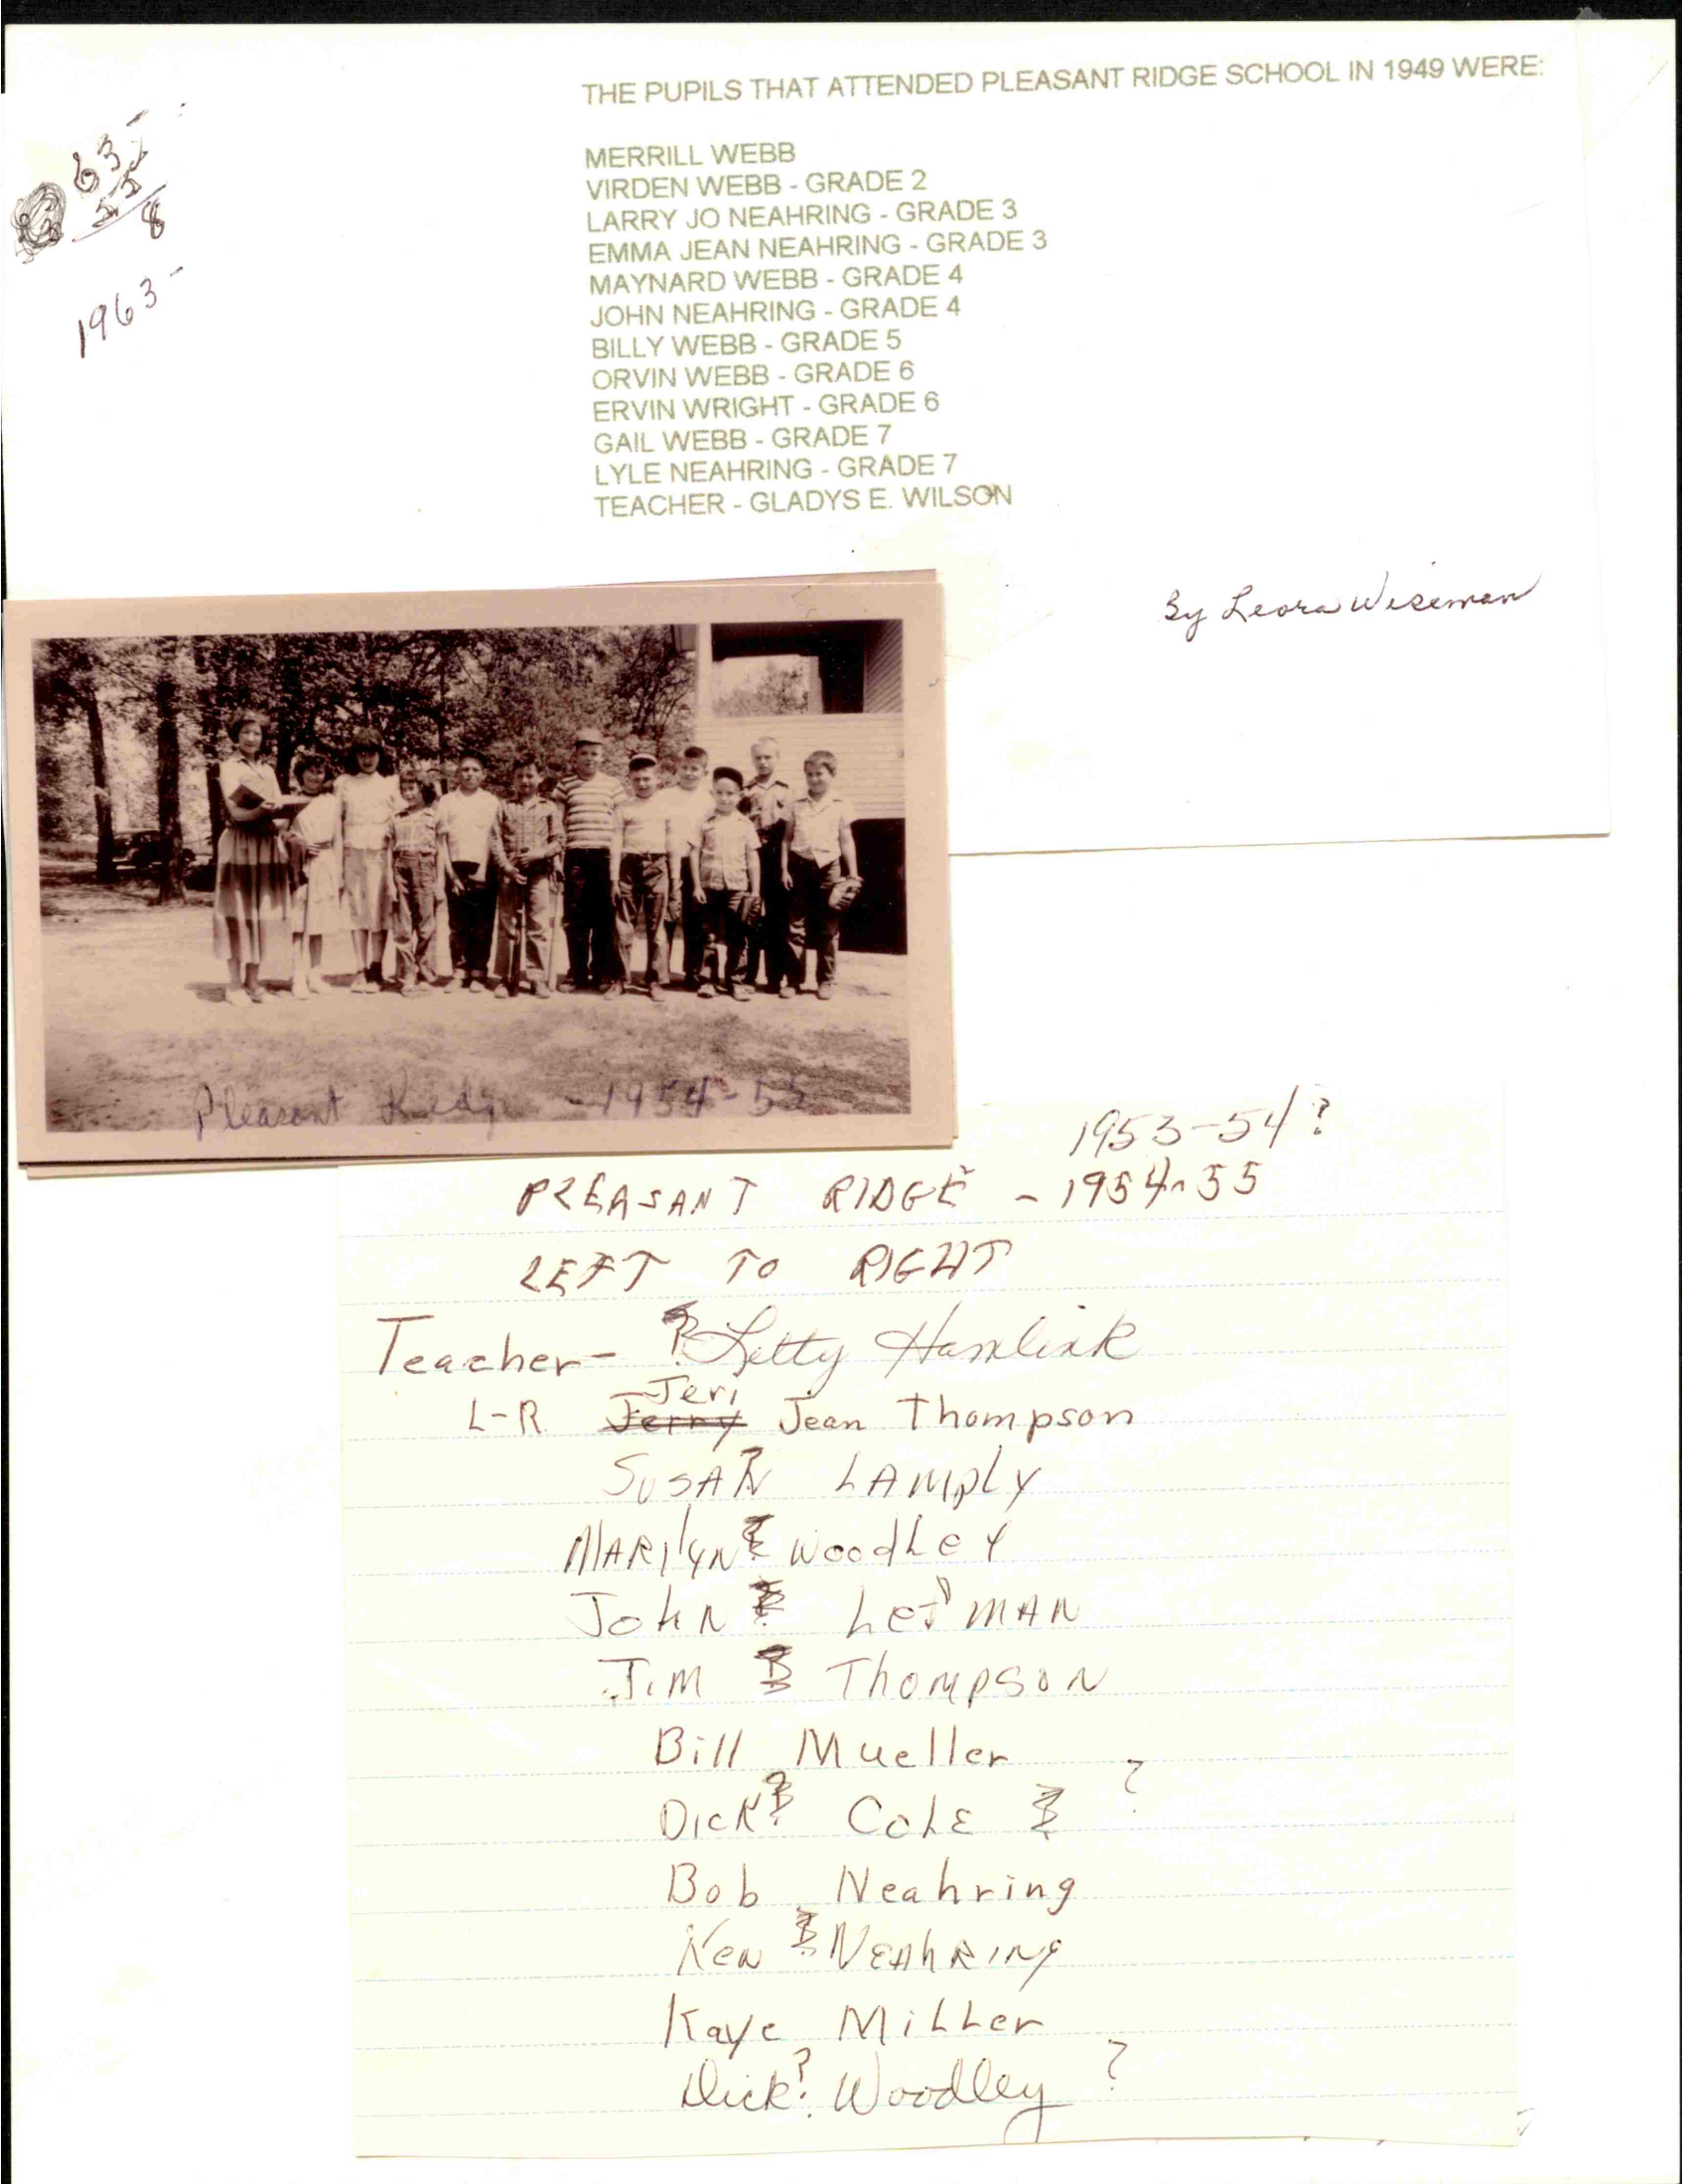 THE PUPILS THAT ATTENDED PLEASANT RIDGE SCHOOL IN 1949 WERE:
MERRILL WEBB
VIRDEN WEBB - GRADE 2
LARRY JO NEAHRING - GRADE 3
EMMA JEAN NEAHRING - GRADE 3
MAYNARD WEBB - GRADE 4
JOHN NEAHRING - GRADE 4
BILLY WEBB - GRADE 5
ORVIN WEBB - GRADE 6
ERVIN WRIGHT - GRADE 6
GAIL WEBB - GRADE 7
LYLE NEAHRING - GRADE 7
TEACHER - GLADYS E. WILSON
63
55
8
1963-
By Leora Wiseman
Pleasant Ridge - 1954-55
1953-54?
PLEASANT RIDGE - 1954-55
LEFT TO RIGHT
Teacher- ? Letty Hamlink
Jeri
L-R Jerry Jean Thompson
SUSAN LAMPLY
MARILYN WoodLey
JoHN MAN
JIM THOMPSON
Bill Mueller
Dick? CoLE ?
Bob Neahring
Ken NEAhRINg
Kaye MiLLer
Dick? Woodley ?